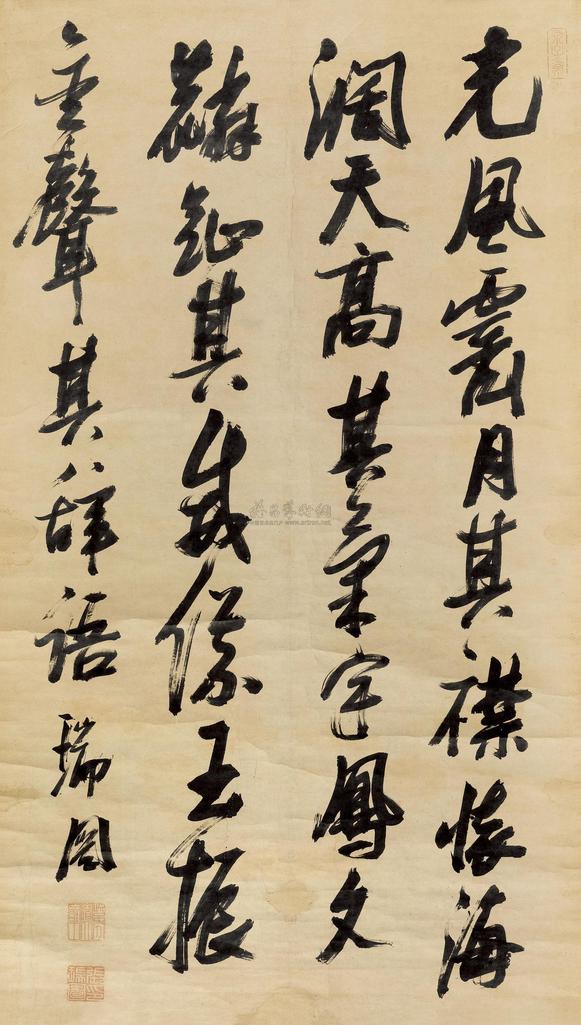 光風霽月其襟懷海
濶天高其氣宇鳳文
麟趾其威儀玉振
金聲其辭語瑞圖
www.artron.net